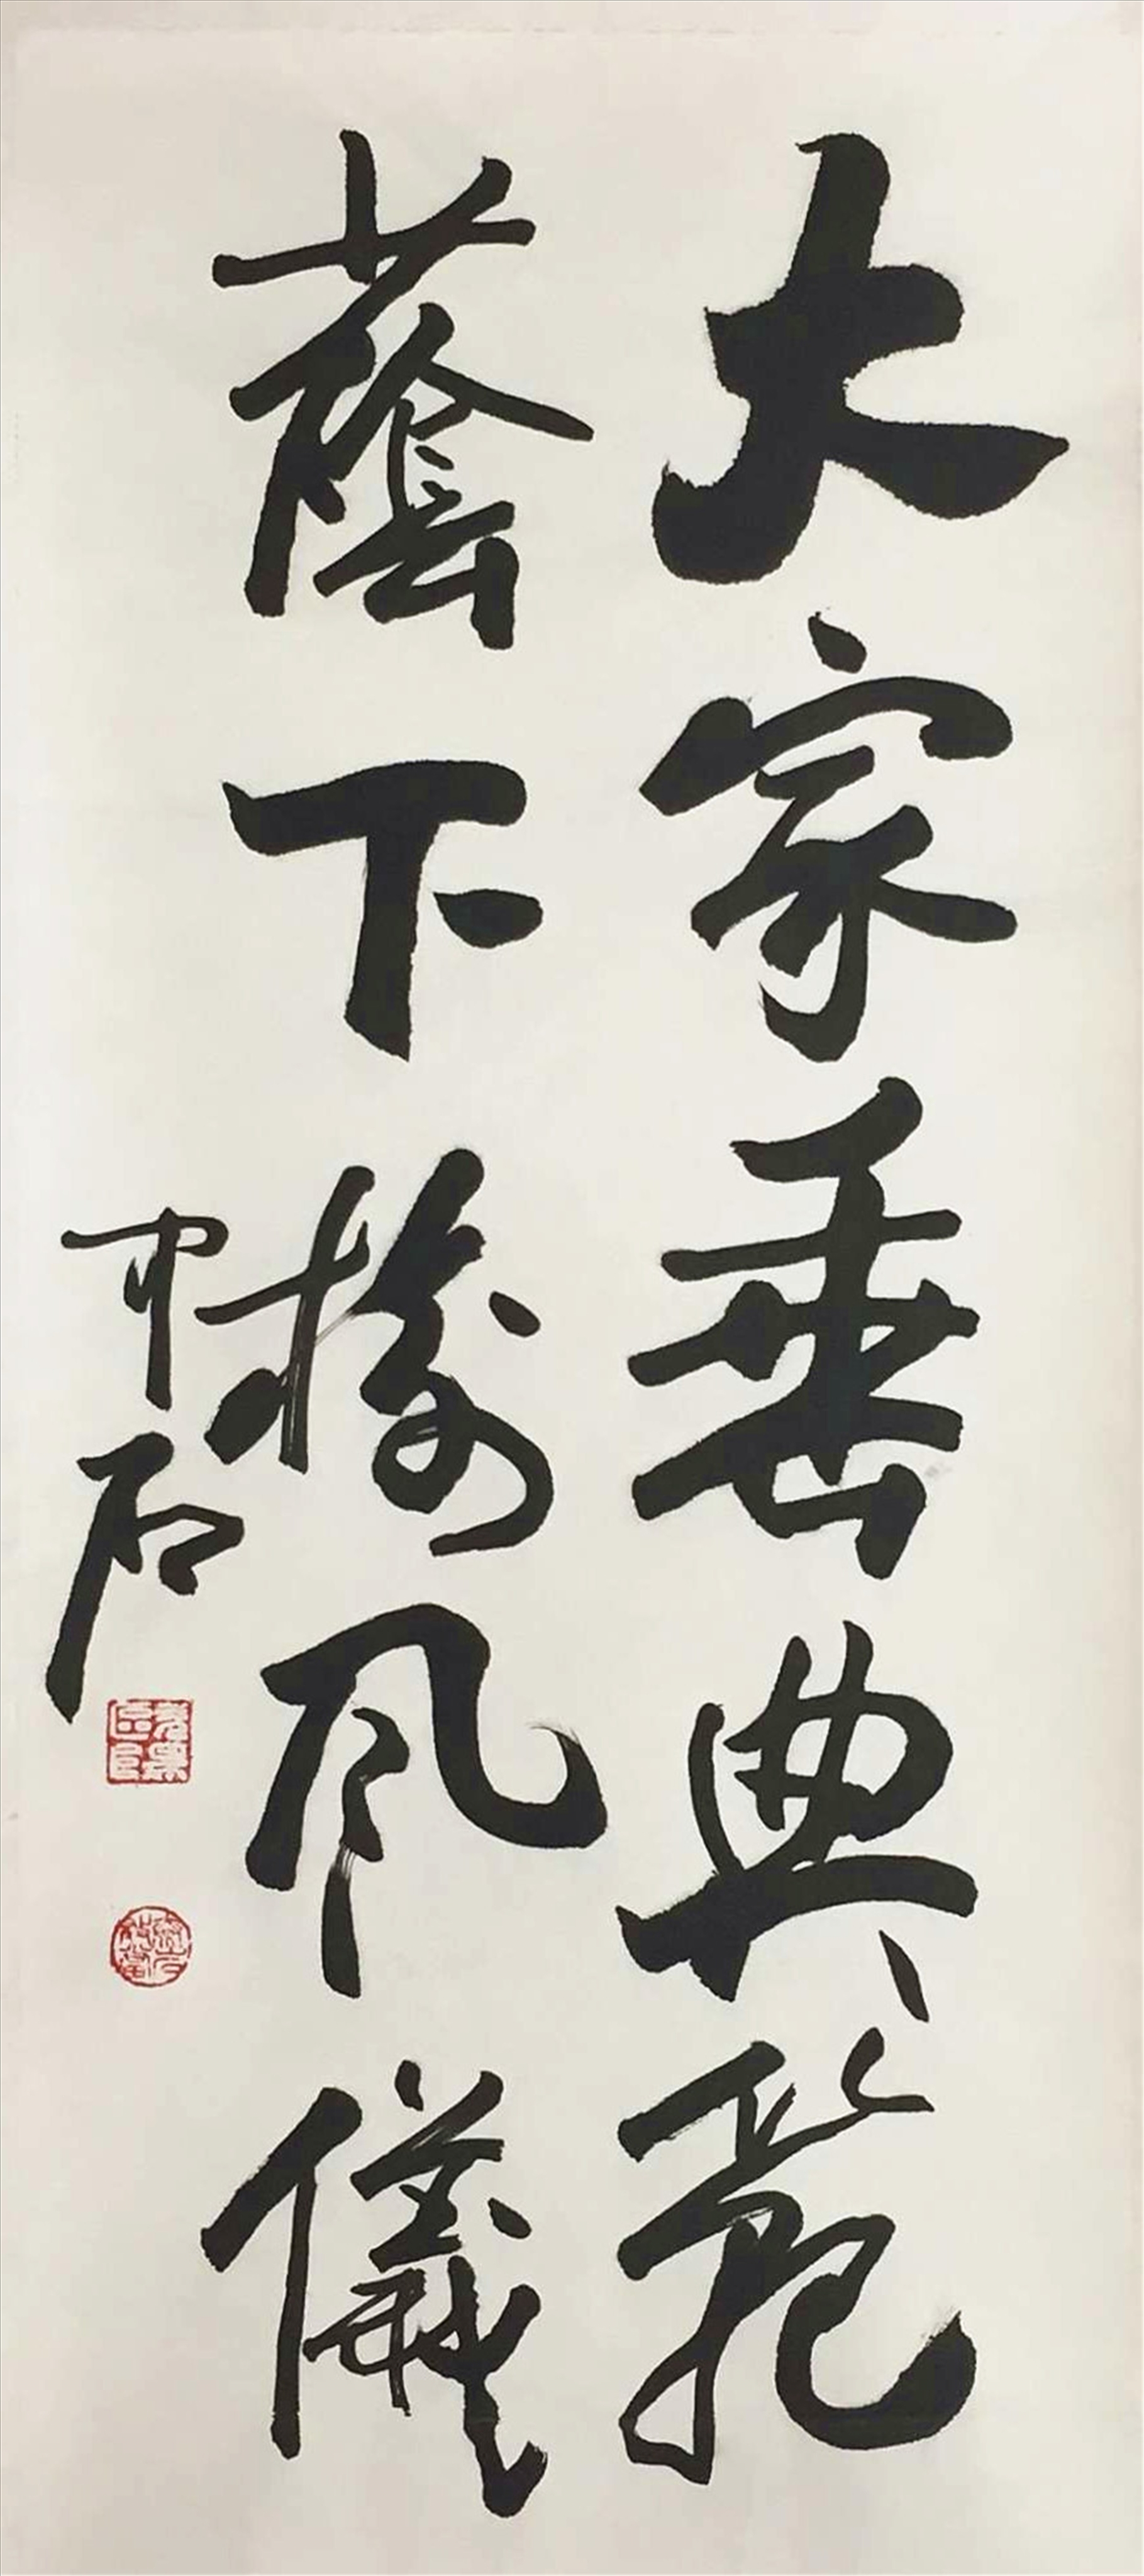 大家垂典范
蔭下揚风儀
中石